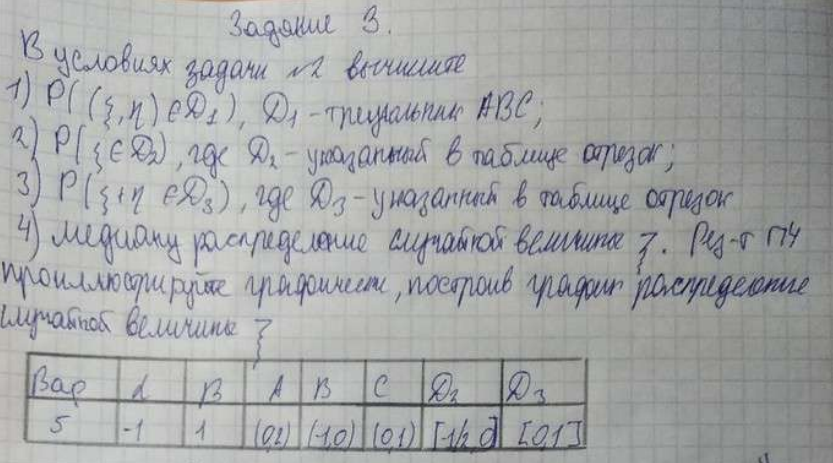 Задание 3.
В условиях задачи №2 вычислите
1) P((ξ,η)∈D₁), D₁ - треугольник ABC;
2) P(ξ∈D₂), где D₂ - указанный в таблице отрезок;
3) P(ξ+η∈D₃), где D₃ - указанный в таблице отрезок
4) медиану распределение случайной величины ξ. Рез-т П4
проиллюстрируйте графически, построив график распределение
случайной величины ξ
Вар α β A B C D₂ D₃
5 -1 1 (0,2) (-1,0) (0,1) [-1/2,0] [0,1]